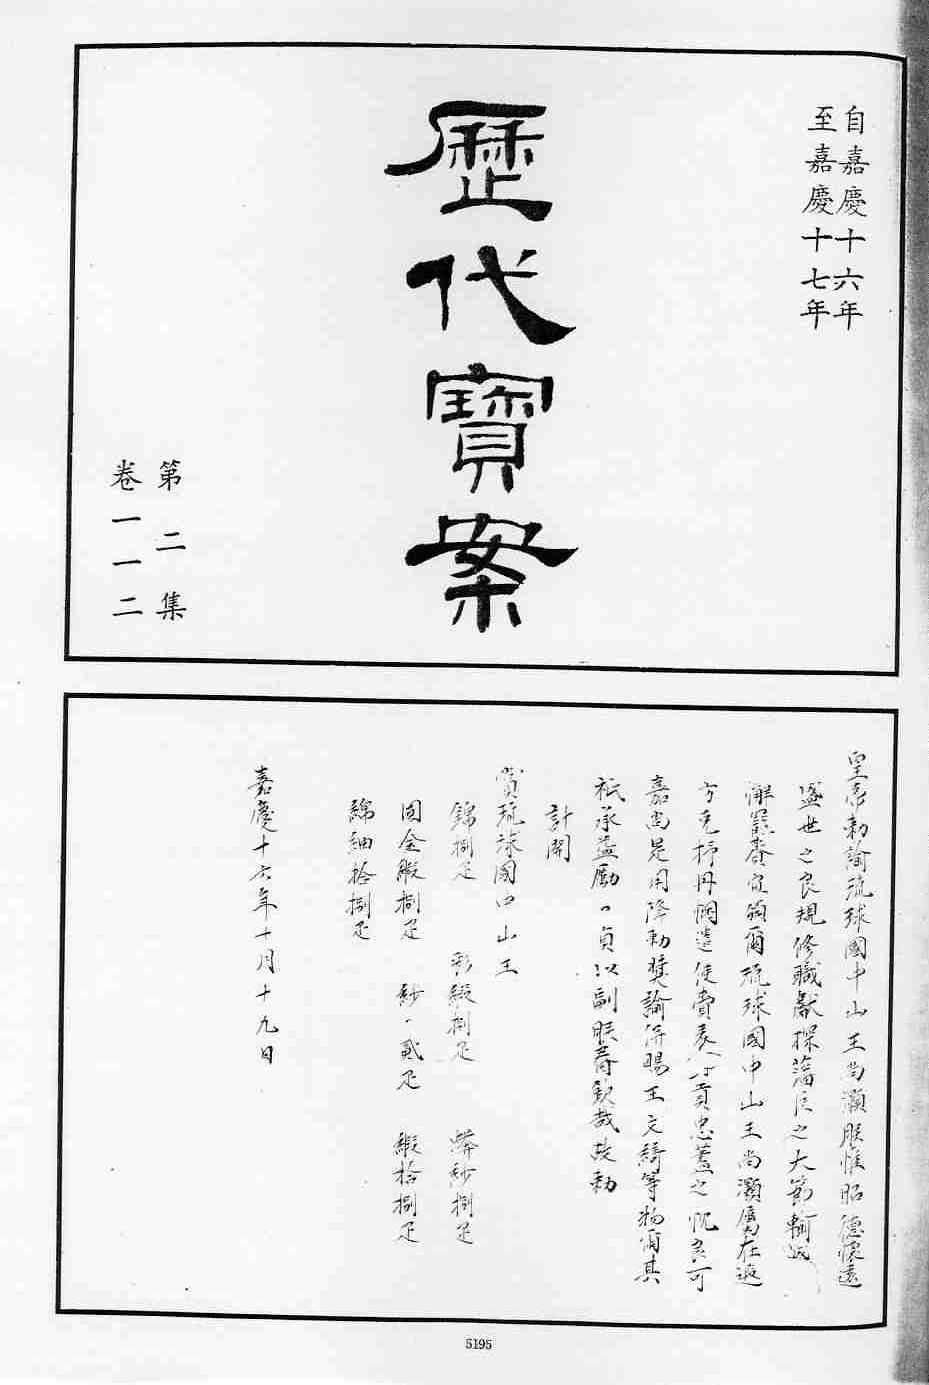 自嘉慶十六年
至嘉慶十七年
歷代寶案
第二集
卷一一二
皇帝勅諭琉球國中山王尚灝朕惟昭德懷遠
盛世之良規修職獻琛藩臣之大節輸誠
罔懈賚宜頒爾琉球國中山王尚灝屬在遐
方克抒丹悃遣使賫表入貢忠藎之忱良可
嘉尚是用降勅獎諭併賜王文綺等物爾其
祇承益勵忠貞以副朕眷欽哉故勅
計開
賞琉球國中山王
錦捌疋 彩緞捌疋 蟒紗捌疋
閃金緞捌疋 紗貳疋 緞拾捌疋
綿紬拾捌疋
嘉慶十六年十月十九日
5195